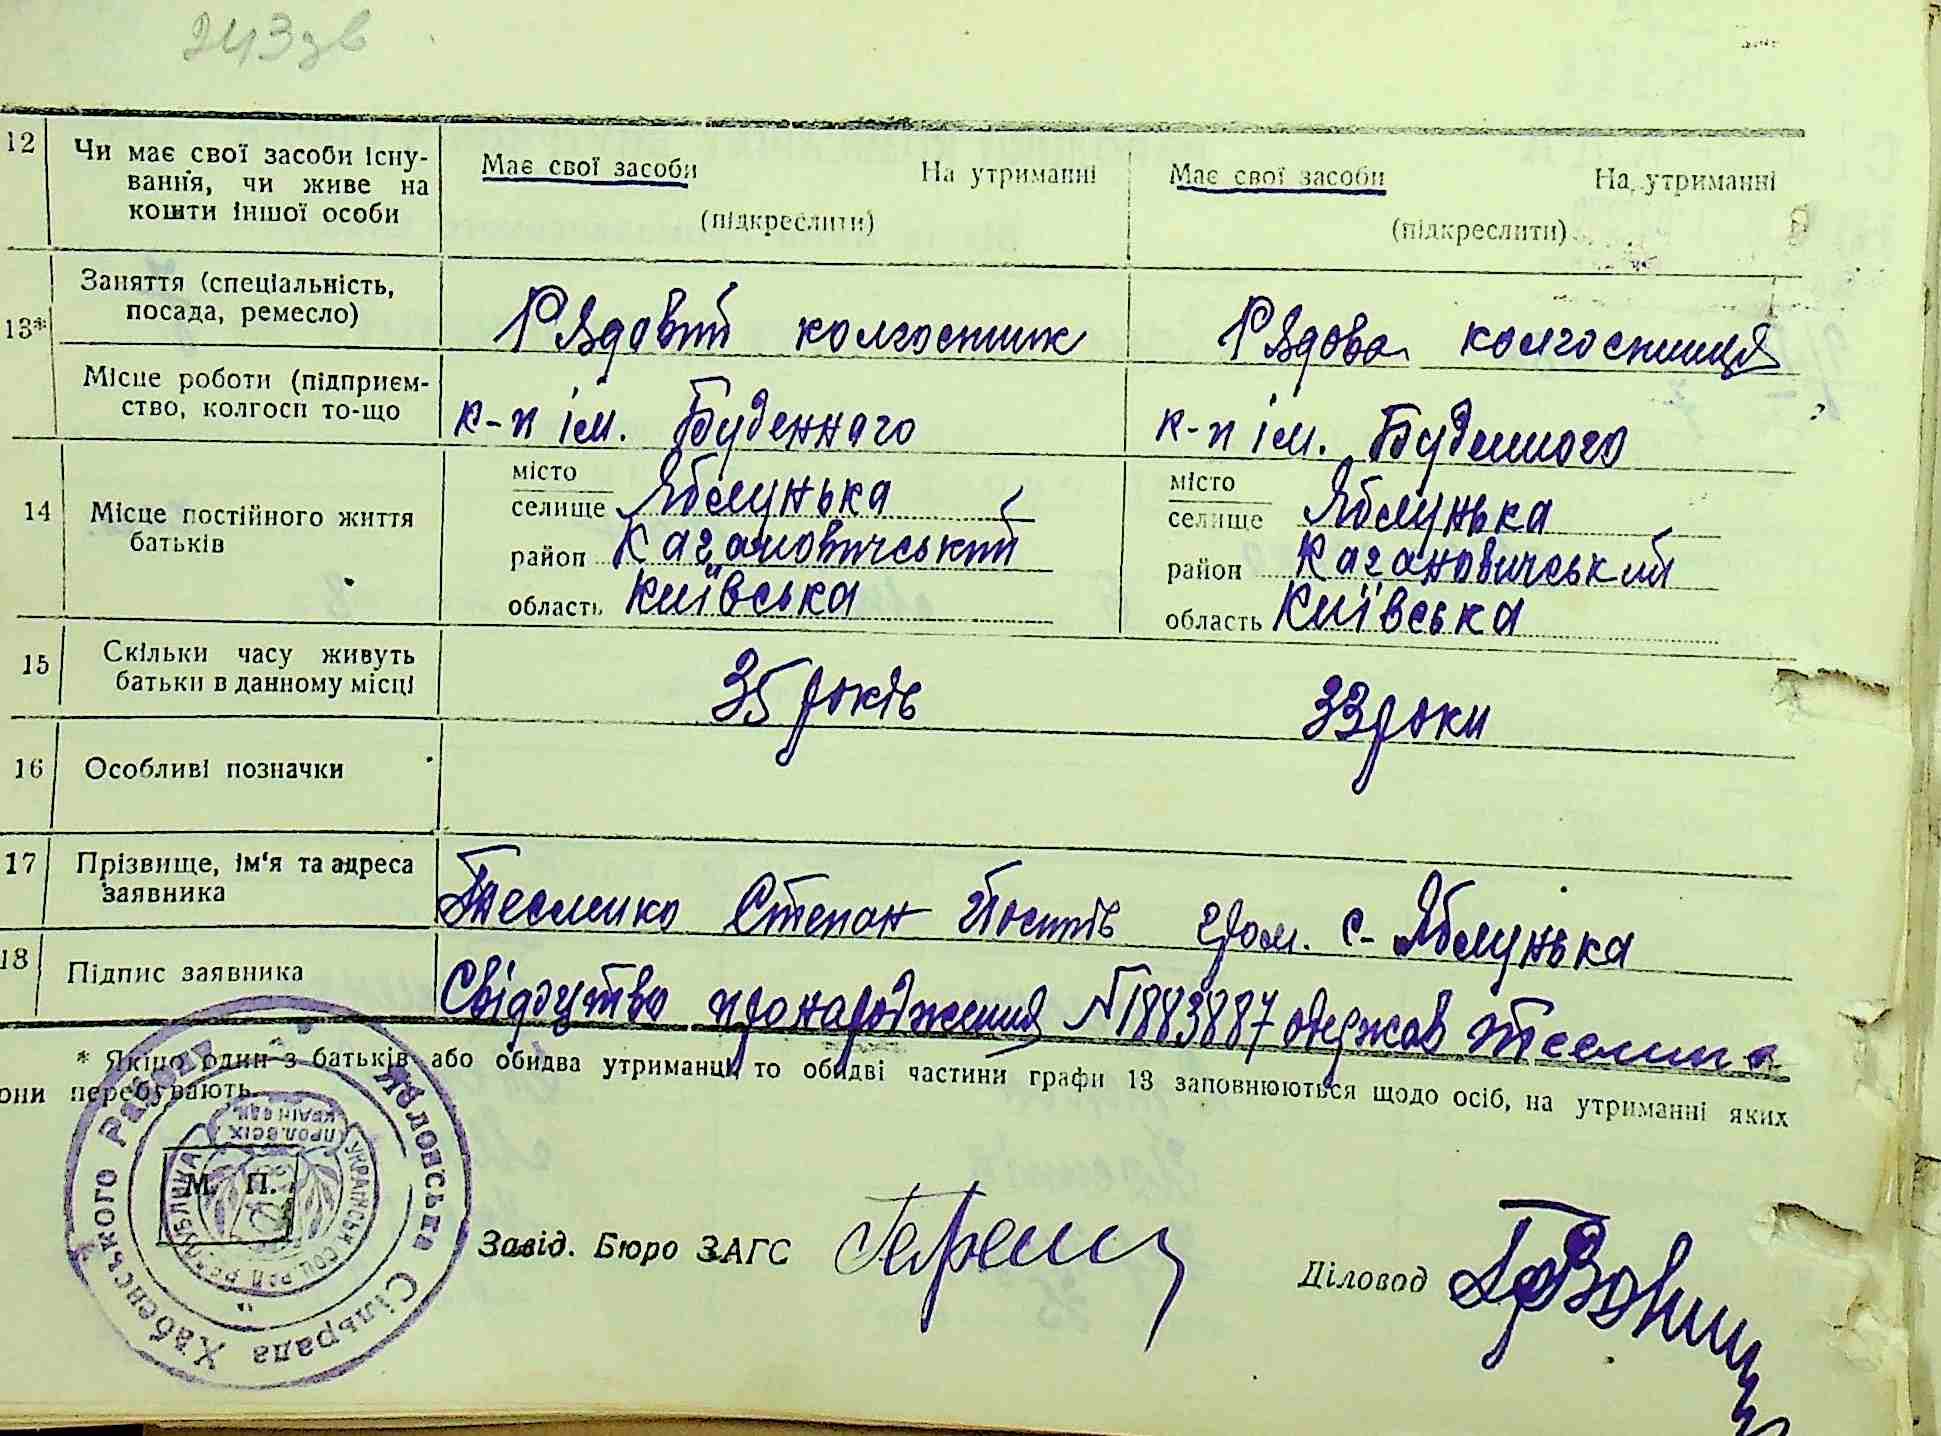 243 зв
12 Чи має свої засоби існу-
вання, чи живе на
кошти іншої особи
Має свої засоби На утриманні
(підкреслити)
Має свої засоби На утриманні
(підкреслити)
13* Заняття (спеціальність,
посада, ремесло)
Рядовий колгоспник
Рядова колгоспниця
Місце роботи (підприєм-
ство, колгосп то-що
к-п ім. Буденного
к-п ім. Буденного
14 Місце постійного життя
батьків
місто
селище Яблунька
район Кагановичський
область Київська
місто
селище Яблунька
район Кагановичський
область Київська
15 Скільки часу живуть
батьки в данному місці
35 років
33 роки
16 Особливі позначки
17 Прізвище, ім'я та адреса
заявника
Тесленко Степан гром. с- Яблунька
18 Підпис заявника
Свідоцтво про народження №1883887 одержав
* Якщо один з батьків або обидва утриманці, то обидві частини графи 13 заповнюються щодо осіб, на утриманні яких
они перебувають.
М. П.
Жовонська Сільрада Хабенського Району
УКРАЇНСЬК СОЦ РАД РЕСПУБЛИКА
ПРОЛ.ВСІХ
КРАЇН ЄДН.
Завід. Бюро ЗАГС
Діловод